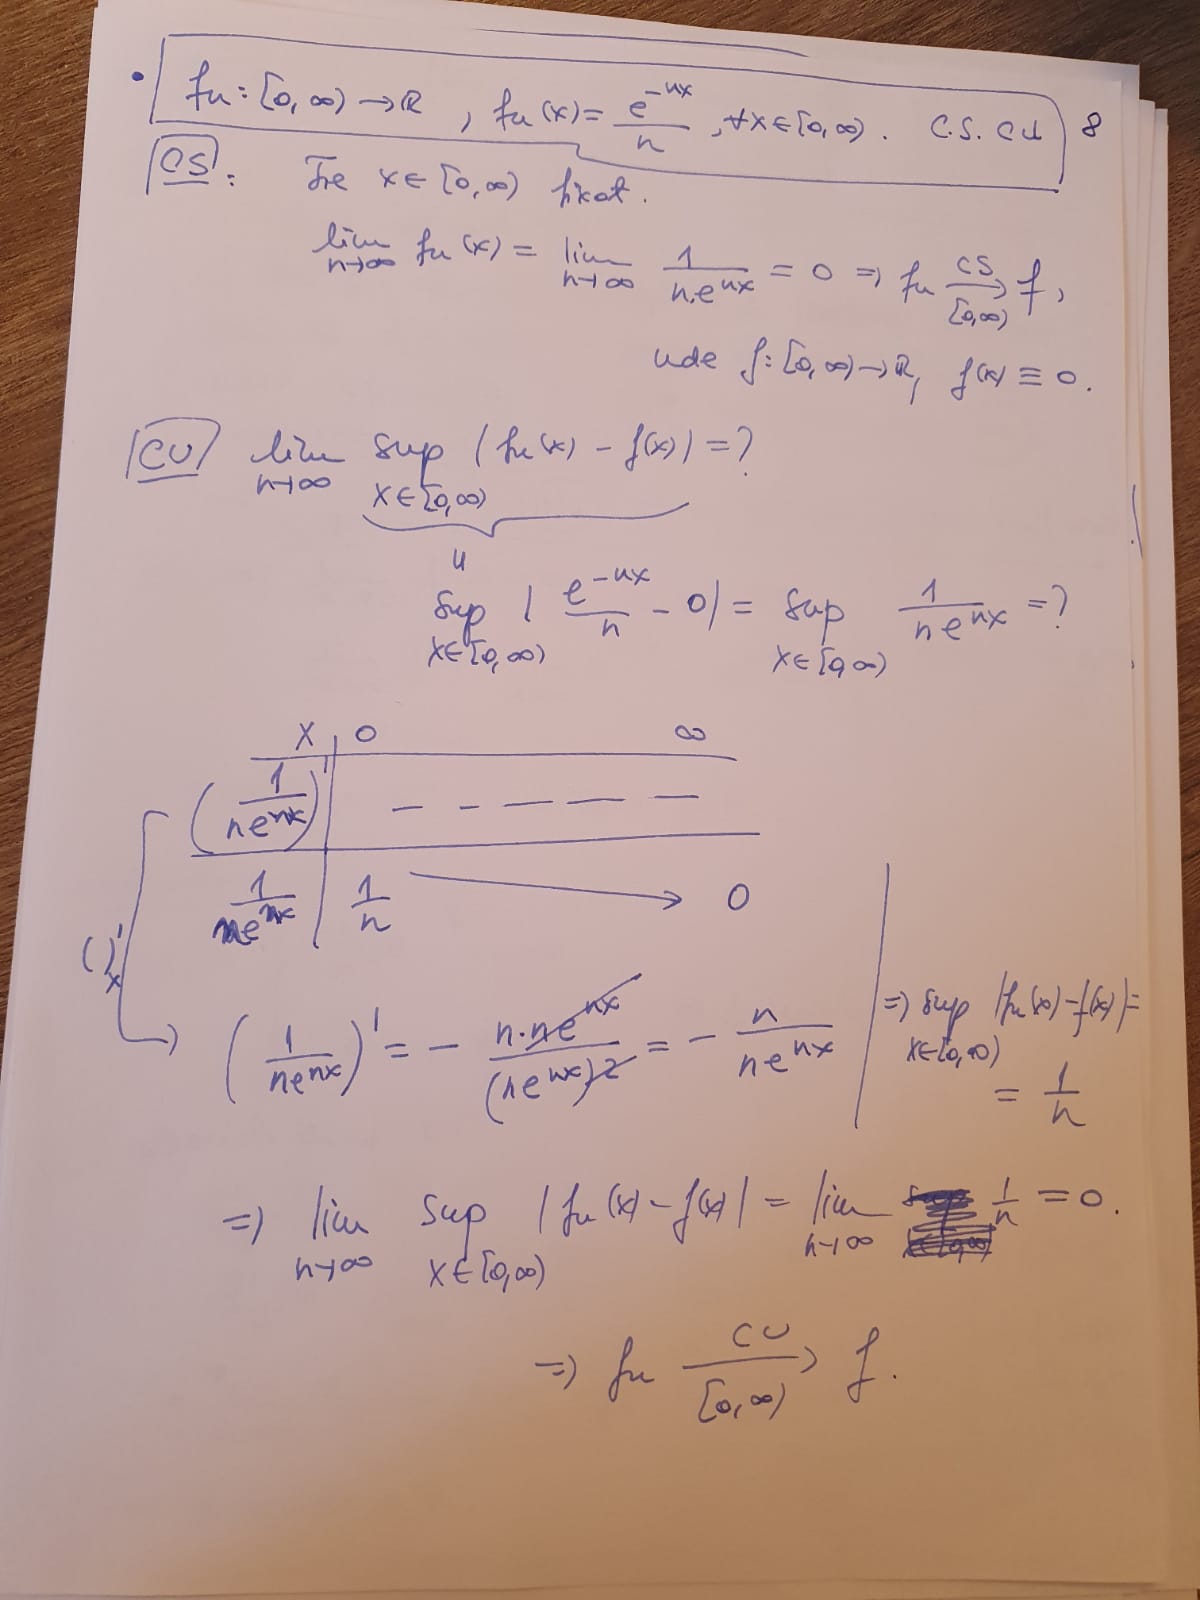 • fn : [0, ∞) → ℝ , fn(x) = e^{-nx}/n , ∀x∈[0, ∞) . C.S. CU 8
CS : Fie x ∈ [0, ∞) fixat.
lim_{n→∞} fn(x) = lim_{n→∞} 1/(n·e^{nx}) = 0 ⇒ fn →^{CS}_{[0,∞)} f,
unde f : [0, ∞) → ℝ, f(x) ≡ 0.
CU lim_{n→∞} sup_{x∈[0,∞)} |fn(x) - f(x)| = ?
"
sup_{x∈[0,∞)} | e^{-nx}/n - 0| = sup_{x∈[0,∞)} 1/(ne^{nx}) = ?
x | 0 ∞
(1/(ne^{nx}))' | - - - - -
1/(ne^{nx}) | 1/n → 0
( )'_x
(1/(ne^{nx}))' = - (n·ne^{nx})/(ne^{nx})^2 = - n/(ne^{nx}) | ⇒ sup_{x∈[0,∞)} |fn(x) - f(x)| =
= 1/n
⇒ lim_{n→∞} sup_{x∈[0,∞)} |fn(x) - f(x)| = lim_{n→∞} 1/n = 0.
⇒ fn →^{CU}_{[0,∞)} f.